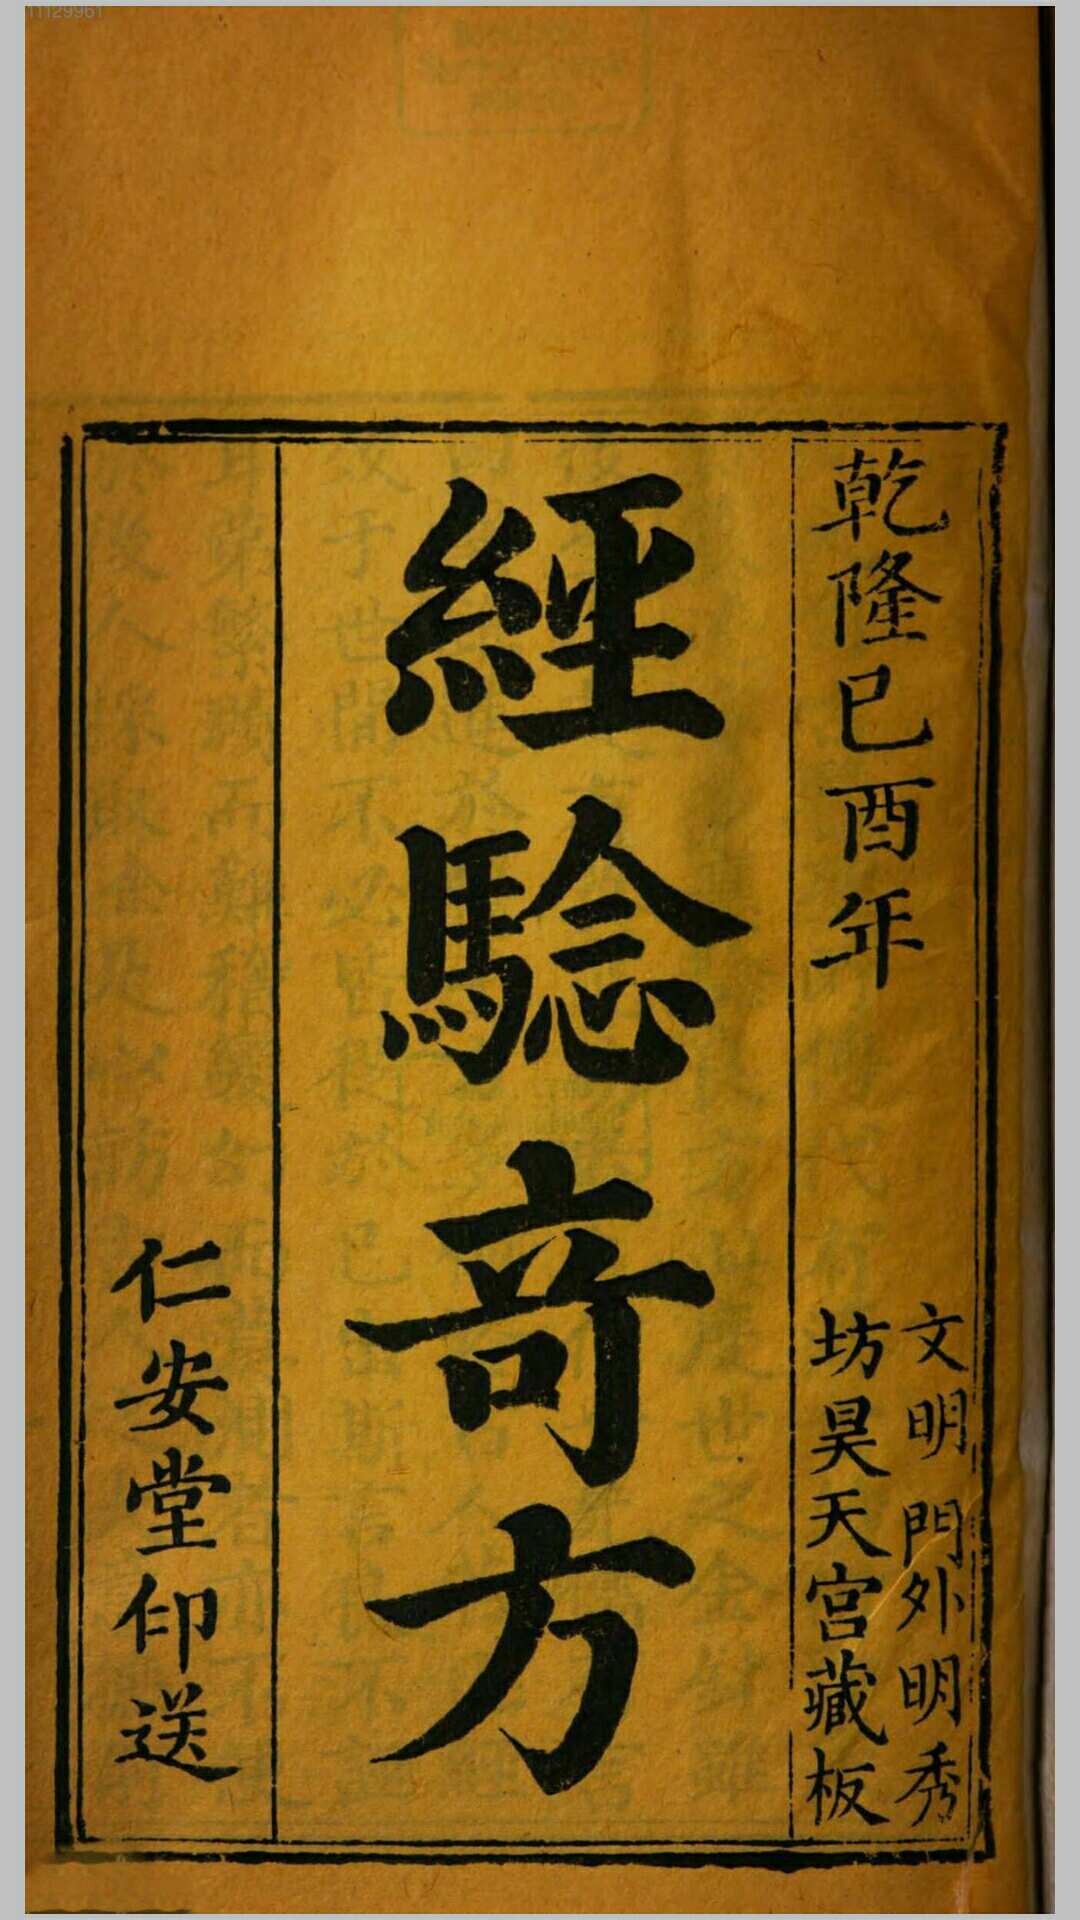 乾隆己酉年
文明門外明秀
坊昊天宫藏板
經騐竒方
仁安堂印送
11129961